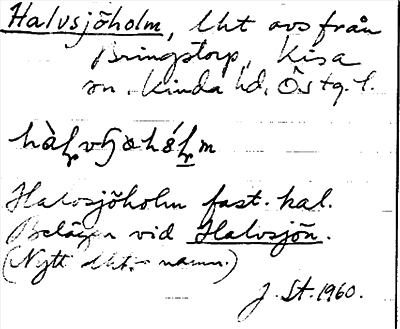 Halvsjöholm, lht avs från
Bringstorp, Kisa
sn. Kinda hd. Östg. l.
Halvsjöholm fast. kal.
Belägen vid Halvsjön.
(Nytt lht.-namn.)
J. St. 1960.